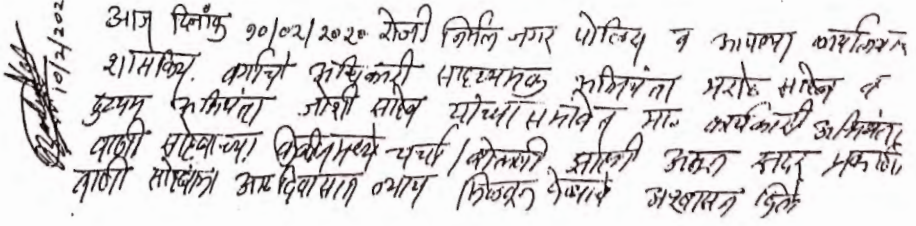 आज दिनांक १०/०२/२०२० रोजी निर्मल नगर पोलिस व आपल्या कार्यालियाच
शासकिय. वर्गाचे अधिकारी साहय्यमक अभियंता मराठे साहेब व
दुय्यम अभियंता जोशी साहेब यांच्या समावेत मा॰ कार्यकारी अभियंता
वाणी साहेबाच्या केबीनमध्ये चर्चा / बोलणी झाली असुन सदर प्रकरणी
वाणी सोहबांनी आठ दिवासात न्याय मिळवून देण्याचे अश्वासन दिले
10/2/202